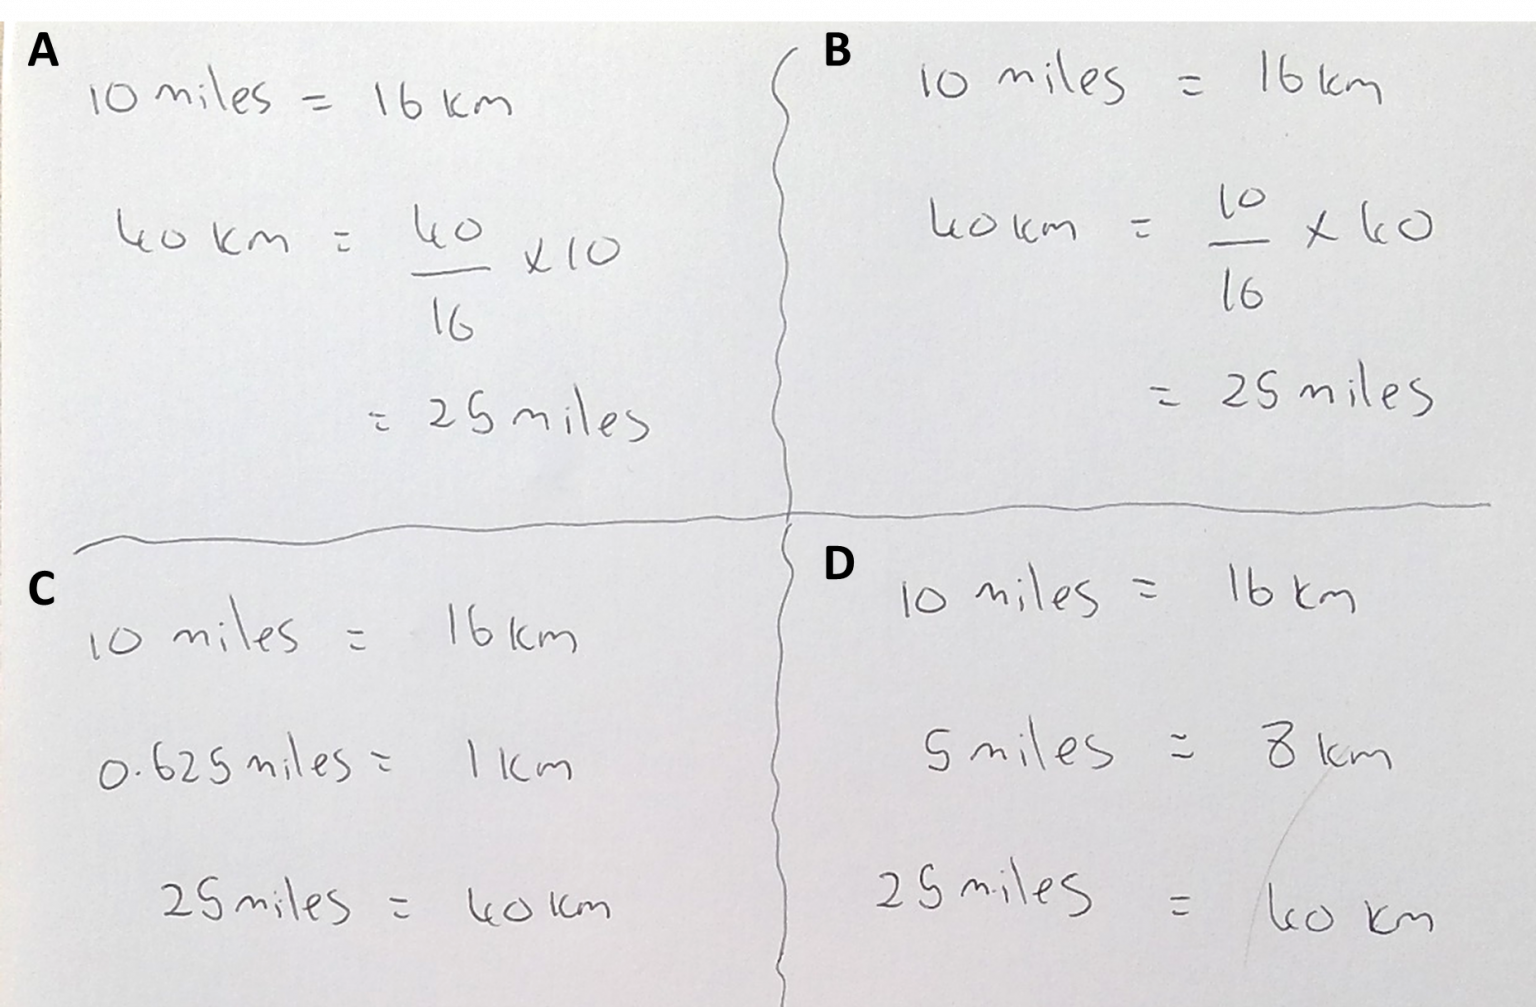 A
10 miles = 16 km
40 km = 40/16 x 10
= 25 miles
B
10 miles = 16 km
40 km = 10/16 x 40
= 25 miles
C
10 miles = 16 km
0.625 miles = 1 km
25 miles = 40 km
D
10 miles = 16 km
5 miles = 8 km
25 miles = 40 km